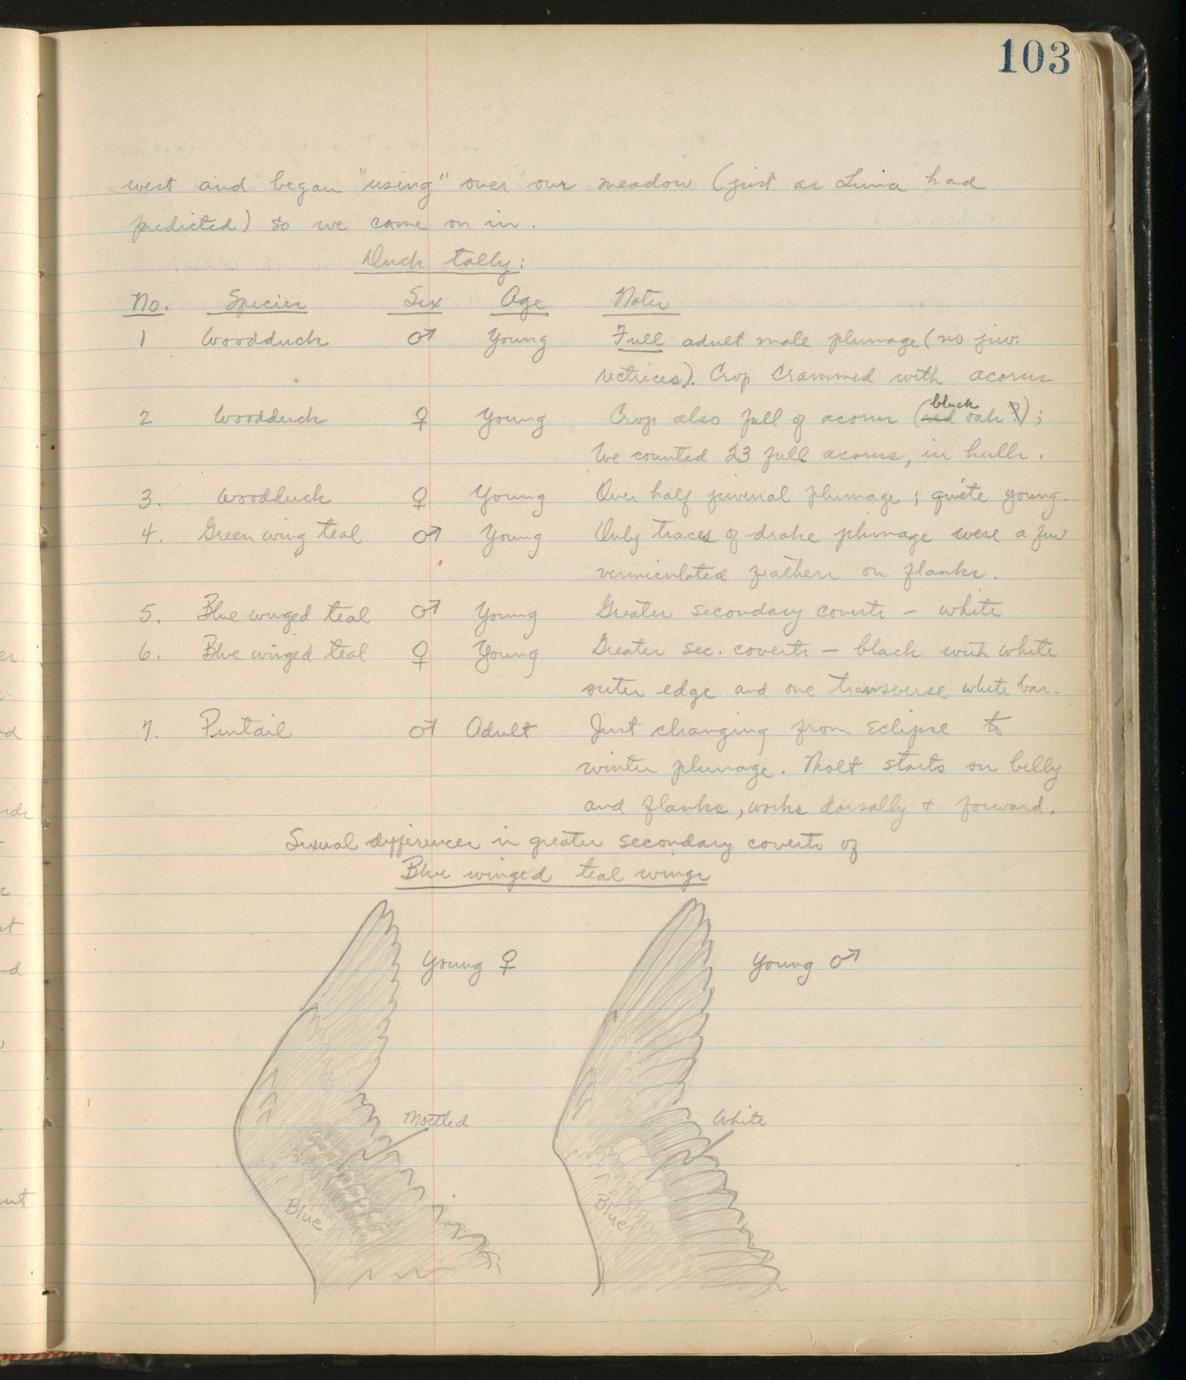 103
west and began "using" over our meadow (just as Luna had
predicted) so we come on in.
Duck tally:
No. Species Sex Age Notes
1 Woodduck ♂ Young Full adult male plumage (no juv.
rectrices). Crop crammed with acorns
2 Woodduck ♀ Young Crop also full of acorns (red black oak ?);
We counted 23 full acorns, in hulls.
3. Woodduck ♀ Young Over half juvenal plumage; quite young.
4. Green wing teal ♂ Young Only traces of drake plumage were a few
vermiculated feathers on flanks.
5. Blue winged teal ♂ Young Greater secondary coverts — white
6. Blue winged teal ♀ Young Greater sec. coverts — black with white
outer edge and one transverse white bar.
7. Pintail ♂ Adult Just changing from eclipse to
winter plumage. Molt starts on belly
and flanks, works dorsally & forward.
Sexual differences in greater secondary coverts of
Blue winged teal wings
Young ♀ Young ♂
Mottled White
Blue Blue